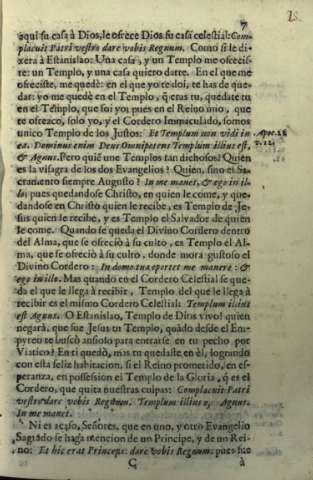 7
aqui su casa à Dios, le ofrece Dios su casa celestial: Com-
placuit Patri vestro dare vobis Regnum. Como si le di-
xera à Estanislao: Una casa, y un Templo me ofrecis-
te: un Templo, y una casa quiero darte. En el que me
ofreciste, me quedè: en el que yo te doi, te has de que-
dar: yo me quedè en el Templo, q̃ eras tu, quedate tu
en el Templo, que soi yo; pues en el Reino mio, que
te ofrezco, solo yo, y el Cordero Immaculado, somos
unico Templo de los Justos: Et Templum non vidi in
ea. Dominus enim Deus Omnipotens Templum illius est,
& Agnus. Pero quiè une Templos tan dichosos? Quien
es la visagra de los dos Evangelios? Quien, sino el Sa-
cramento siempre Augusto? In me manet, & ego in il-
lo: pues quedandose Christo, en quien le come, y que-
dandose en Christo quien le recibe, es Templo de Je-
sus quien le recibe, y es Templo el Salvador de quien
le come. Quando se queda el Divino Cordero dentro
del Alma, que se ofreciò à su culto, es Templo el Al-
ma, que se ofreciò à su culto, donde mora gustoso el
Divino Cordero: In domo tua oportet me manere: &
ego in illo. Mas quando en el Cordero Celestial se que-
da el que le llega à recibir, Templo del que le llega à
recibir es el mismo Cordero Celestial: Templum illius
est Agnus. O Estanislao, Templo de Dios vivo! quien
negarà, que fue Jesus tu Templo, quãdo desde el Em-
pyreo te buscò ansioso para entrarse en tu pecho por
Viatico? En ti quedò, mas tu quedaste en èl, logrando
con esta feliz habitacion, si el Reino prometido, en es-
peranza, en possession el Templo de la Gloria, q̃ es el
Cordero, que quita nuestras culpas: Complacuit Patri
vestro dare vobis Regnum. Templum illius est Agnus.
In me manet.
Ni es acaso, Señores, que en uno, y otro Evangelio
Sagrado se haga mencion de un Principe, y de un Rei-
no: Et hic erat Princeps: dare vobis Regnum: pues fue
C
à
Apoc. 21
v. 22.